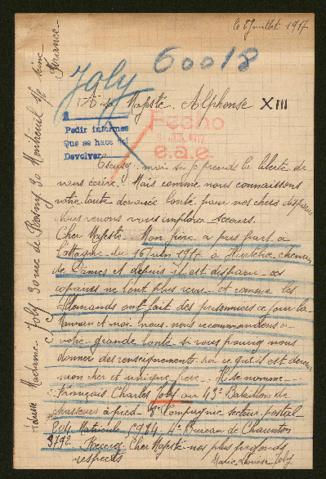 le 8 Juillet 1917
60018
Joly
A sa Majesté Alphonse XIII
Pedir informes
Que se haga
Devolver
Fecho
e.a.e
Excusez-moi si je prends la liberté de
vous écrire. Mais comme nous connaissons
votre toute dévouée bonté pour nos chers disparus
nous venons vous implorer secours.
Cher Majesté. Mon frère a pris part à
l'attaque du 16 Juin 1917 à Hurtebise, chemin
de Dames et depuis il est disparu ses
copains ne l'ont plus revu et comme les
Allemands ont fait des prisonniers ce jour la
Maman et moi nous nous recommandons a
votre grande bonté si vous pouviez nous
donner des renseignements sur ce qu'il est devenu
mon cher et unique frère. Il se nomme
François Charles Joly au 49e Bataillon de
chasseurs à pied Compagnie Secteur postal
204 Matricule 1984 4e Bureau de Charenton
3792. Recevez Cher Majesté nos plus profonds
respects
Marie Louise Joly
Adresse Madame Joly 30 rue de Rosny 30 Montreuil s/s Bois
Seine
France